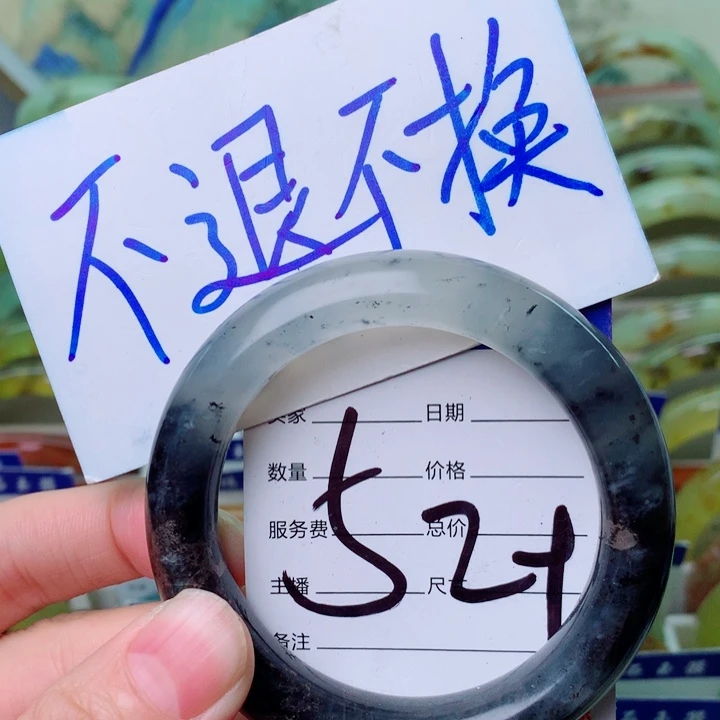 不退不换
卖家 日期
数量 价格
服务费 总价
主播 尺寸
备注
52+